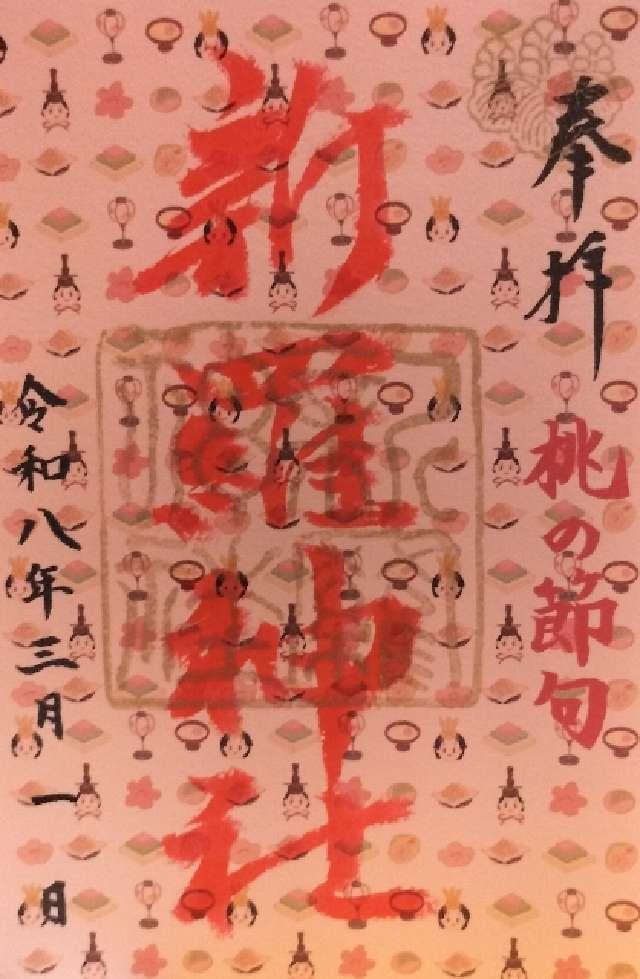 奉拝
桃の節句
新羅神社
令和八年三月一日